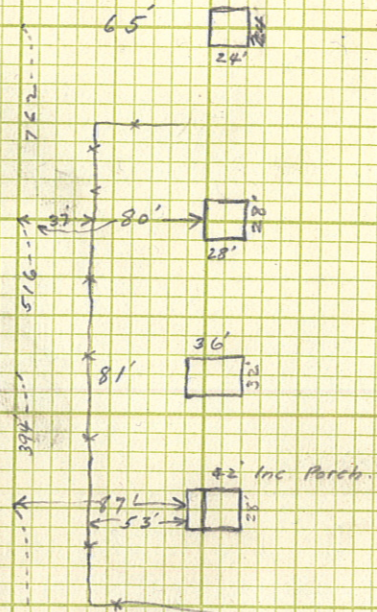 65'
24'
762
37'
80'
28'
28'
516
36'
81'
32'
394
42' Inc Porch.
87'
53'
28'